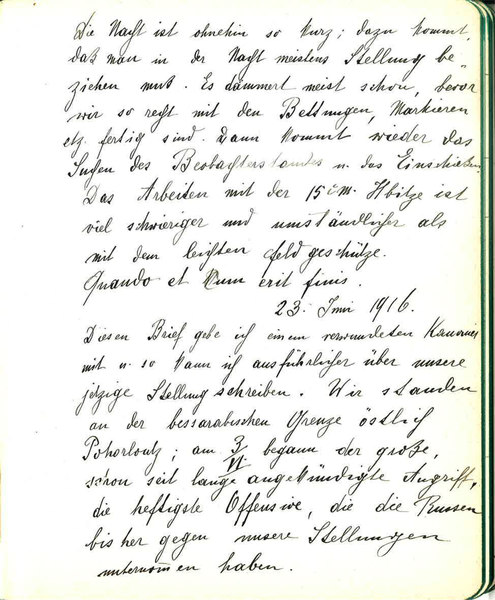 Die Nacht ist ohnehin so kurz; dazu kommt,
daß man in der Nacht meistens Stellung be-
ziehen muß. Es dämmert meist schon, bevor
wir so recht mit den Bettungen, Markieren
etz. fertig sind. Dann kommt wieder das
Suchen des Beobachterstandes u. das Einschießen.
Das Arbeiten mit der 15 cm. Hbitze ist
viel schwieriger und umständlicher als
mit dem leichten Feldgeschütze.
Quando et kum erit finis.
23. Juni 1916.
Diesen Brief gebe ich einem verwundeten Kanonier
mit u. so kann ich ausführlicher über unsere
jetzige Stellung schreiben. Wir standen
an der bessarabischen Grenze östlich
Pohorloutz; am 3/VI begann der große,
schon seit lange angekündigte Angriff,
die heftigste Offensive, die die Russen
bisher gegen unsere Stellungen
unternommen haben.